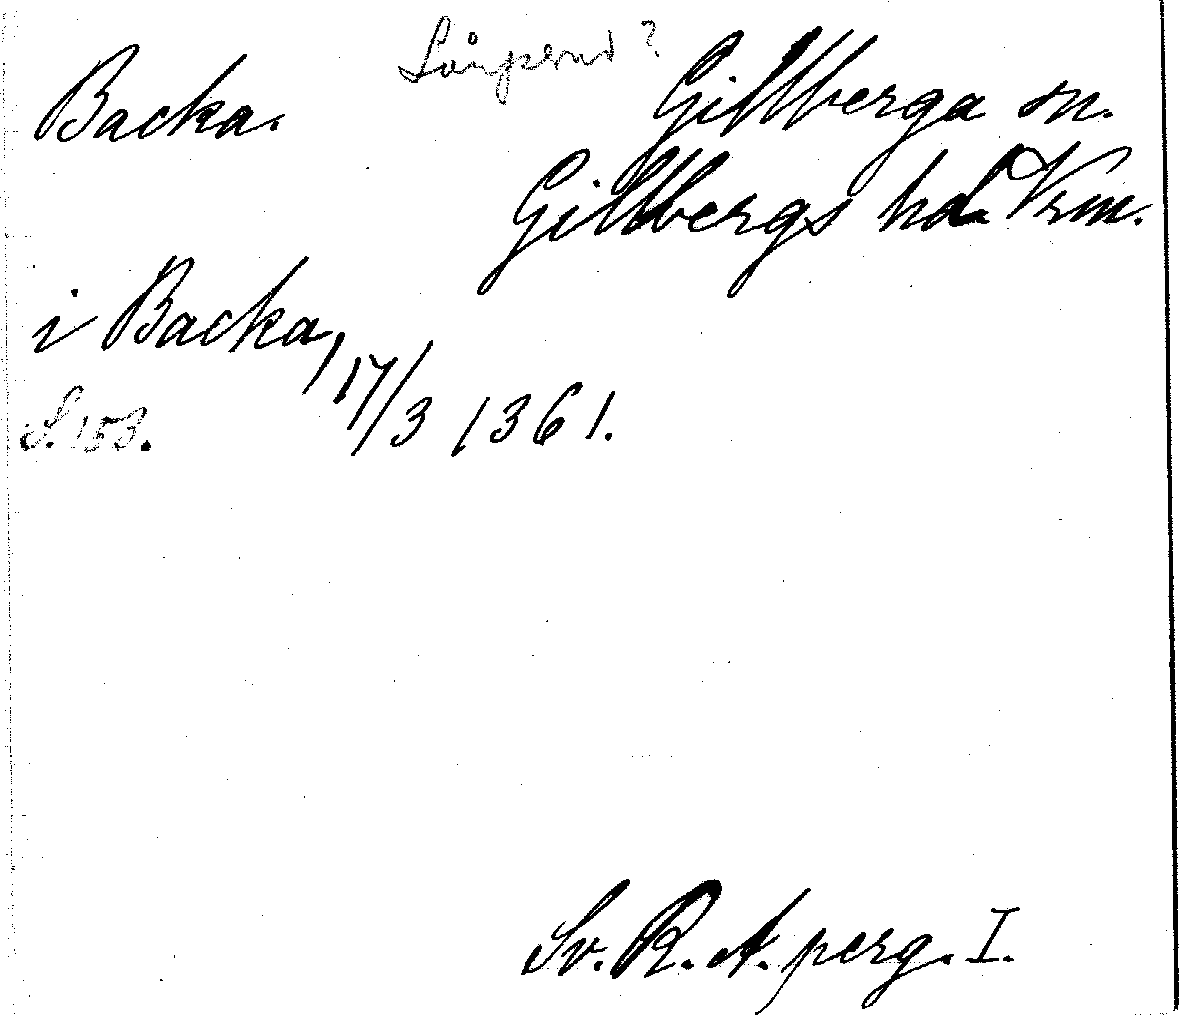 Backa.
Gillberga sn.
Gillbergs hd. Vrm.
i Backa, 17/3 1361.
S. 153.
Sv. R. A. perg. I.